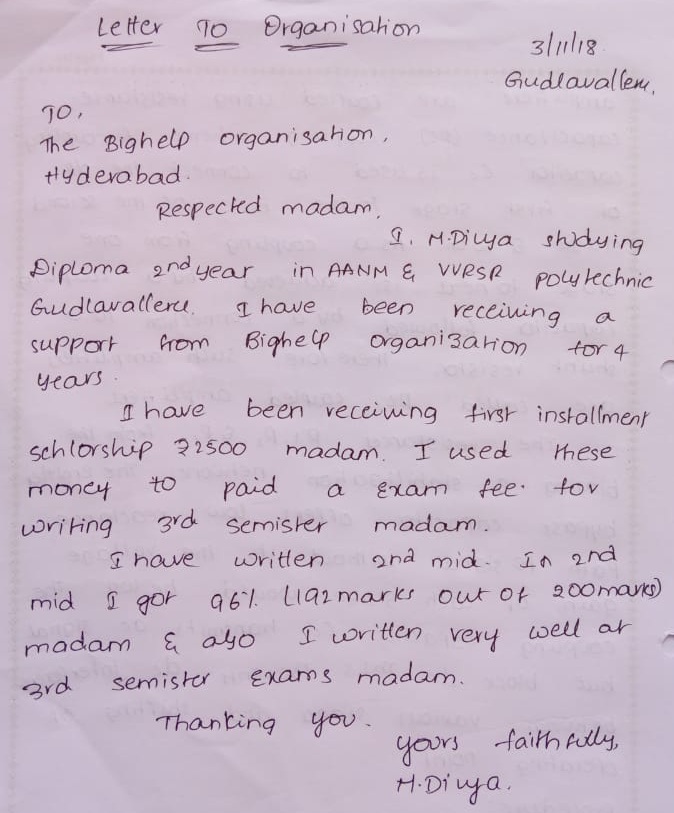 Letter To Organisation
3/11/18
Gudlavalleru,
TO,
The Bighelp organisation,
Hyderabad.
Respected madam,
I. M.Divya studying
Diploma 2nd year in AANM & VVRSR polytechnic
Gudlavalleru. I have been receiving a
support from Bighelp organization for 4
years.
I have been receiving first installment
schlorship ₹2500 madam. I used these
money to paid a exam fee. for
writing 3rd semister madam.
I have written 2nd mid. In 2nd
mid I got 96% (192 marks out of 200 marks)
madam & also I written very well at
3rd semister exams madam.
Thanking you.
yours faithfully,
M.Divya.